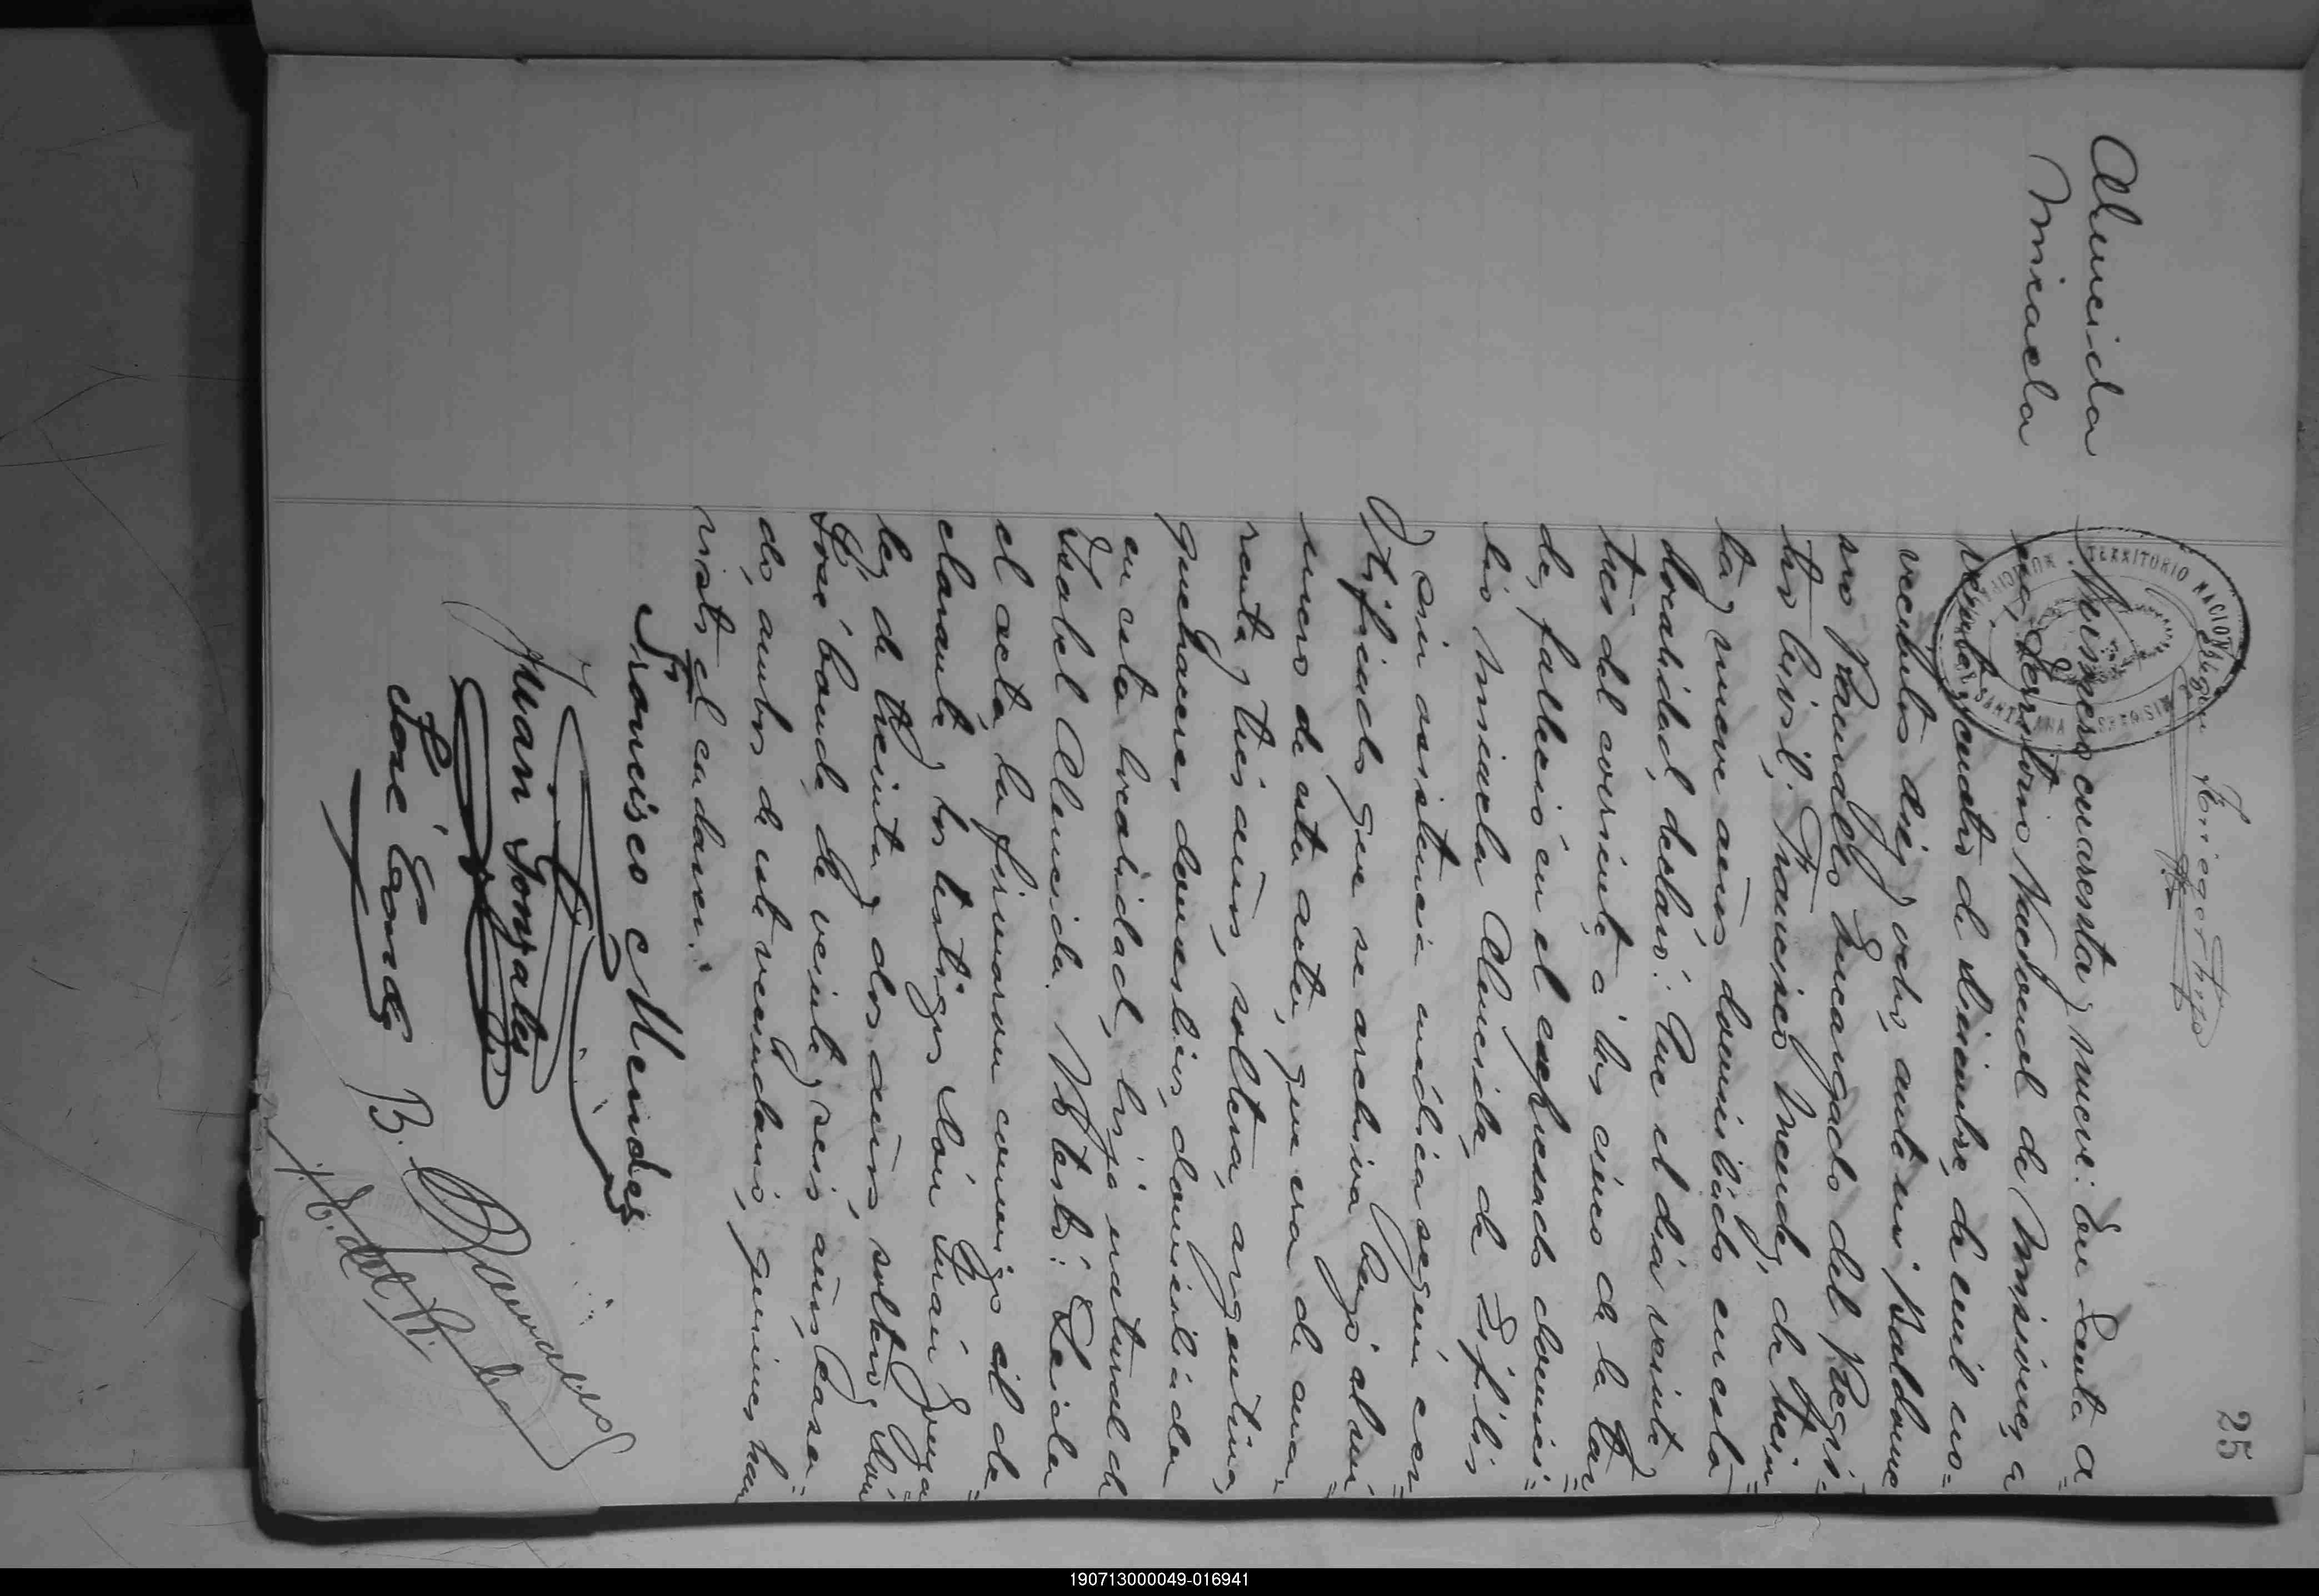 25
Almeida
Micaela
TERRITORIO NACIONAL
MISIONES
SANTA ANA
Numero cuarenta y nueve: En Santa A=
na, Territorio Nacional de Misiones, a
veinte y cuatro de diciembre, de mil no=
vecientos diez y ocho, ante mi Baldome
ro Ramallo Encargado del Regis=
tro Civil; Francisco Mendez, de trein=
ta y nueve años domiciliado en esta
localidad, declaró: Que el día veinte y
tres del corriente a las cinco de la tar=
de, falleció en el expresado domici=
lio, Micaela Almeida, de Sifilis
sin asistencia médica segun cer=
tificado que se archiva bajo el nú=
mero de esta acta, que era de cua=
renta y tres años, soltera, argentina,
quehaceres domesticos, domiciliada
en esta localidad, hija natural de
Isabel Almeida. Leida
el acta, la firmaron conmigo el de=
clarante y los testigos Don Juan Gonza=
lez de treinta y dos años, soltero y Don
José Conde, de veinte y seis años, Casa=
do, ambos de este vecindario, quienes han
visto el cadaver.
Francisco Mendez
Juan Gonzales
José Conde
B. Ramallo